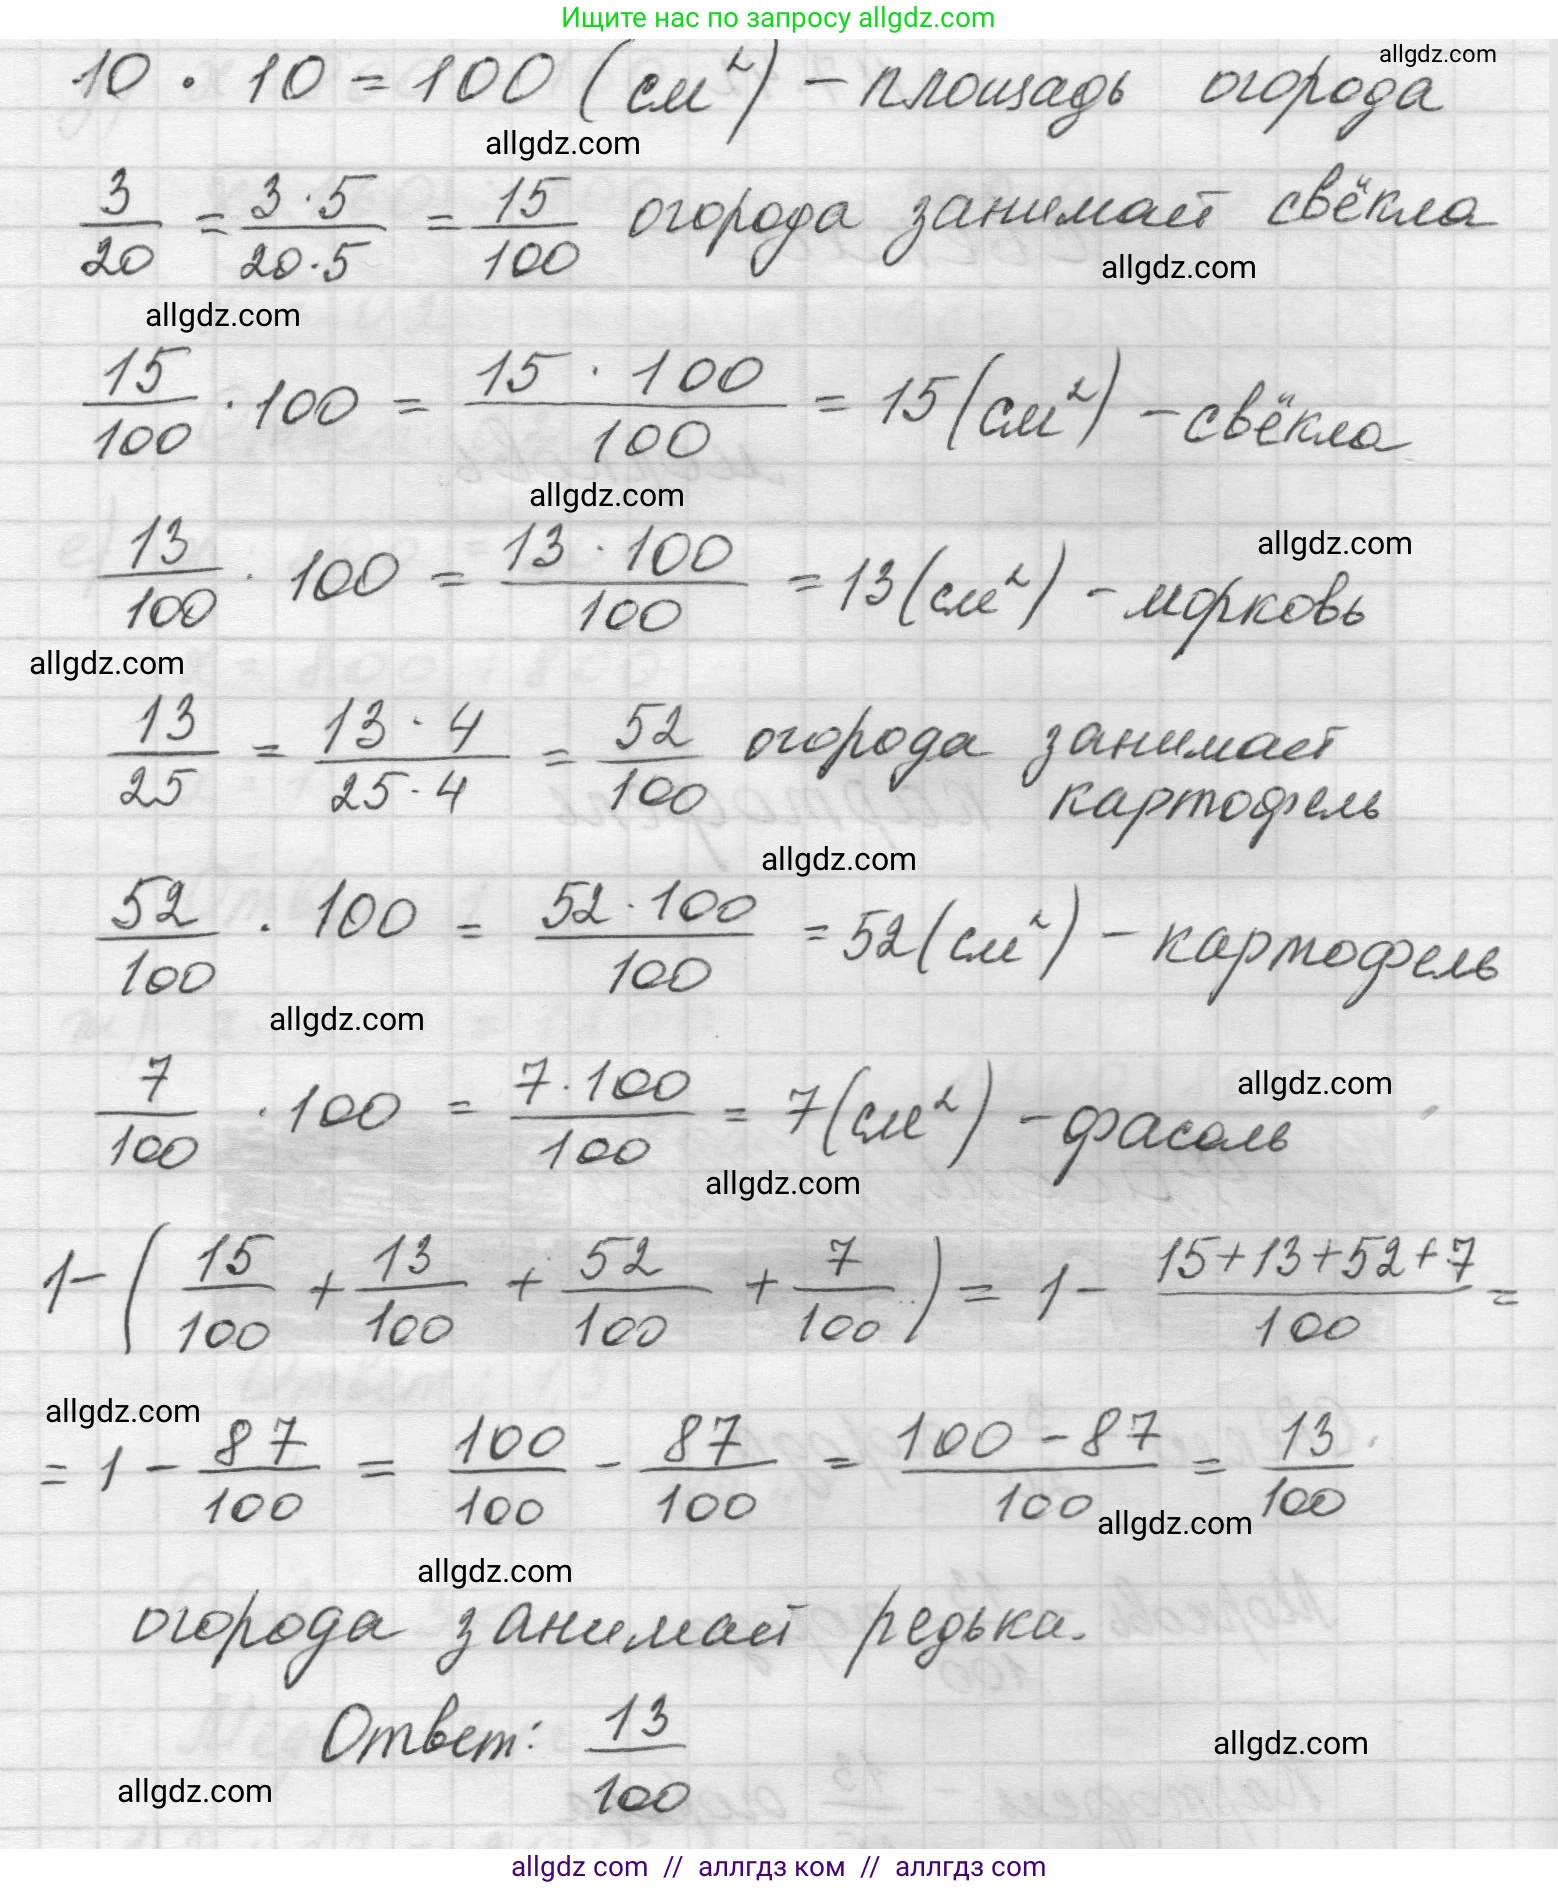 Ищите нас по запросу allgdz.com
allgdz.com
10 · 10 = 100 (см²) – площадь огорода
allgdz.com
3/20 = 3·5/20·5 = 15/100 огорода занимает свёкла
allgdz.com
allgdz.com
15/100 · 100 = 15 · 100/100 = 15 (см²) – свёкла
allgdz.com
allgdz.com
13/100 · 100 = 13 · 100/100 = 13 (см²) – морковь
allgdz.com
13/25 = 13 · 4/25 · 4 = 52/100 огорода занимает
картофель
allgdz.com
52/100 · 100 = 52 · 100/100 = 52 (см²) – картофель
allgdz.com
allgdz.com
7/100 · 100 = 7 · 100/100 = 7 (см²) – фасоль
allgdz.com
1 – (15/100 + 13/100 + 52/100 + 7/100) = 1 – 15+13+52+7/100 =
allgdz.com
= 1 – 87/100 = 100/100 – 87/100 = 100 – 87/100 = 13/100
allgdz.com
allgdz.com
огорода занимает редька.
Ответ: 13/100
allgdz.com
allgdz.com
allgdz com // аллгдз ком // аллгдз com